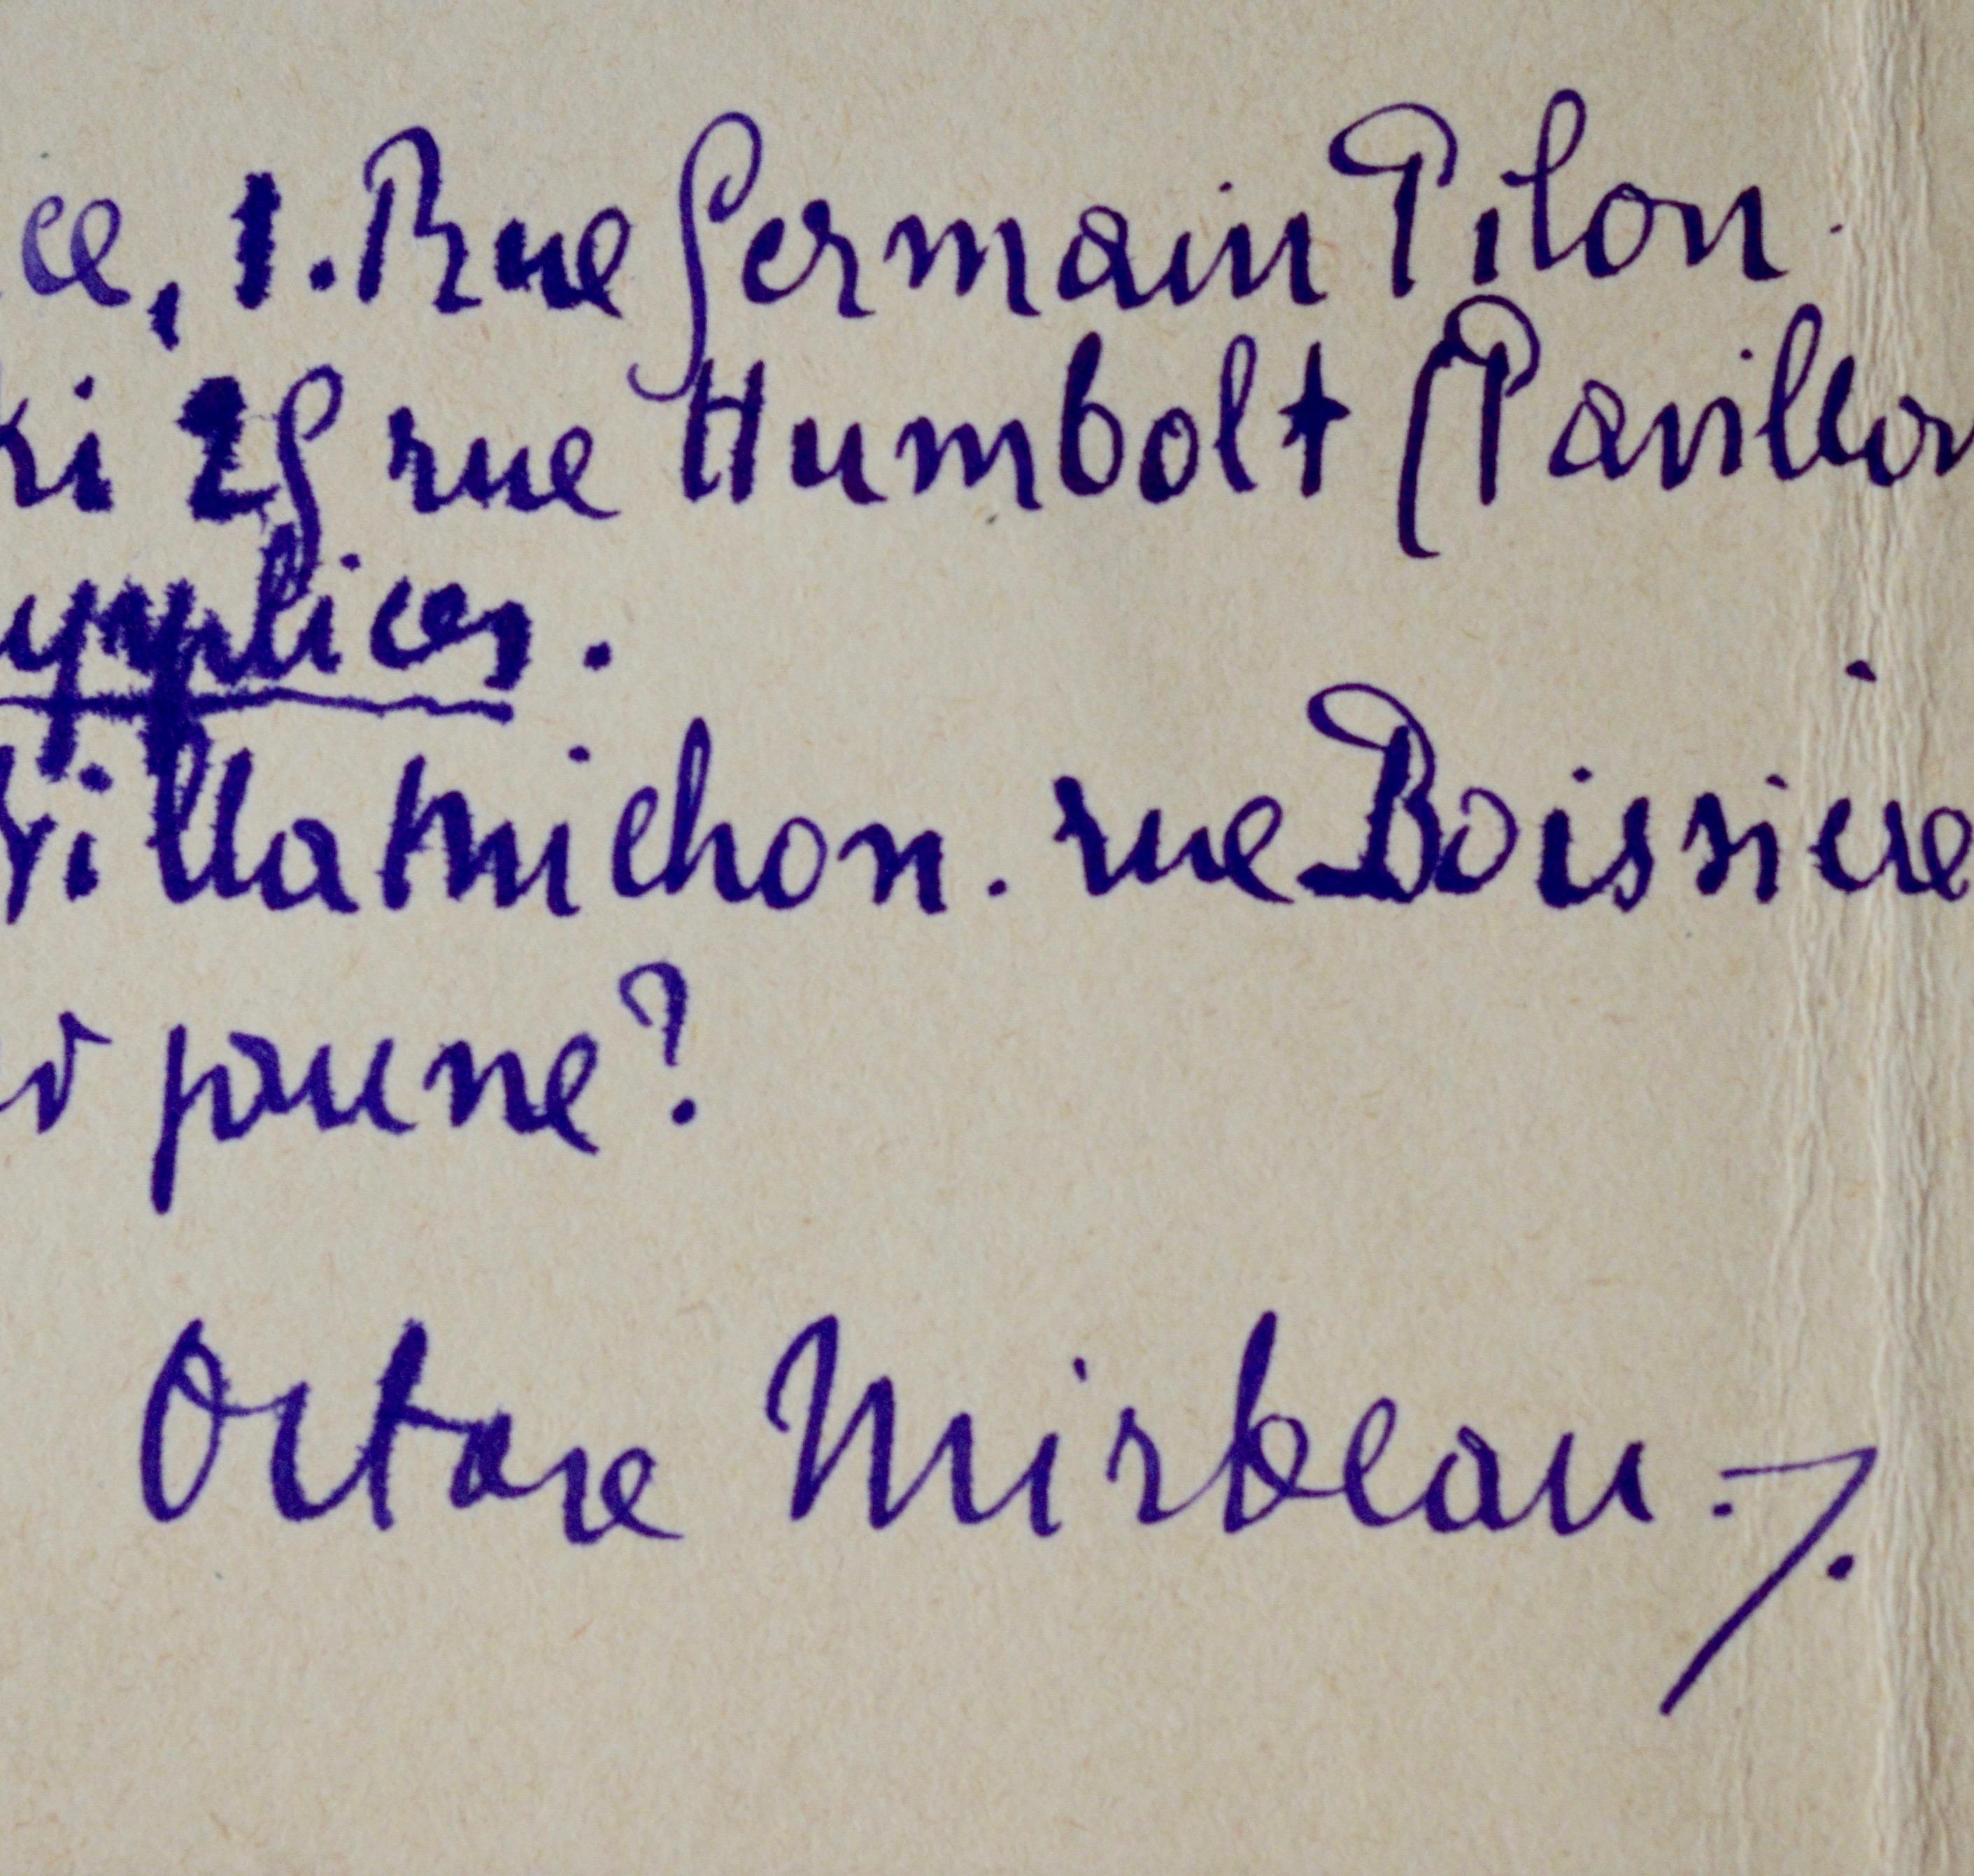 ce, 1. Rue Germain Pilon.
ki 29 rue Humbolt (Pavillon
upplices.
Villa Michon. rue Boissière
jaune?
Octave Mirbeau